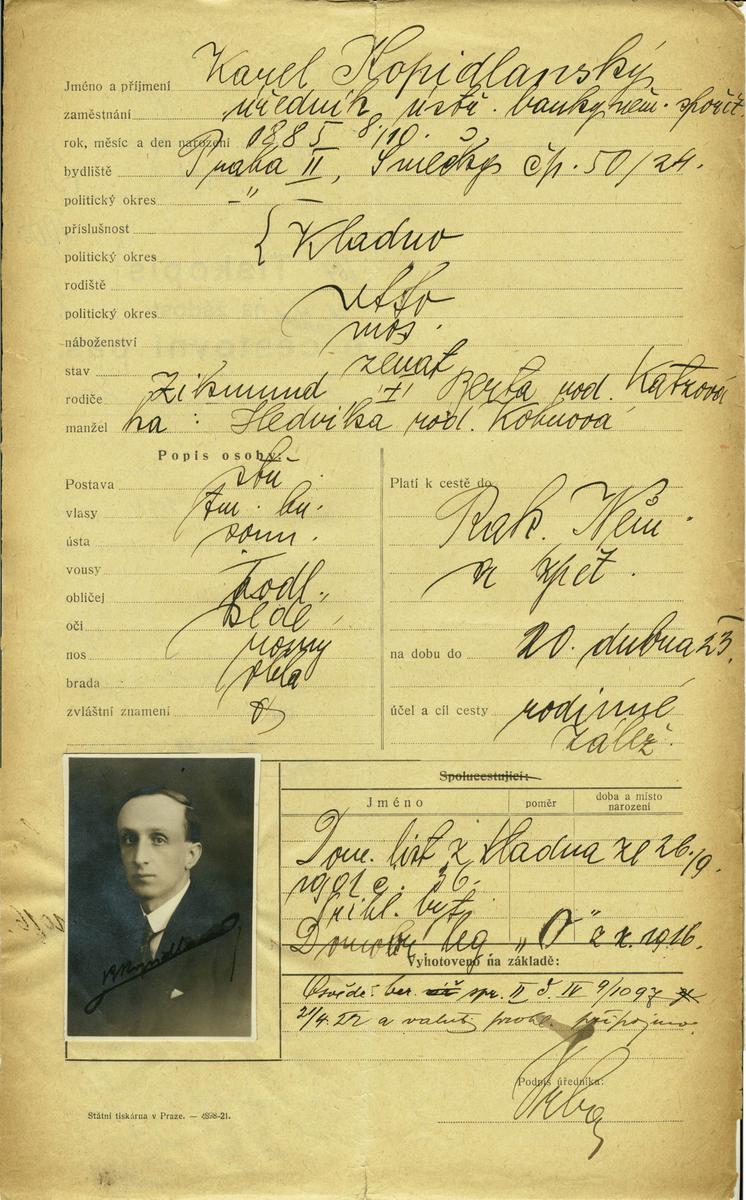 Jméno a příjmení Karel Kopidlanský
zaměstnání úředník ústř. banky něm. spořit.
rok, měsíc a den narození 1885 8/10.
bydliště Praha II, Smečky čp. 50/24.
politický okres -"-
příslušnost { Kladno
politický okres
rodiště
politický okres
náboženství mos.
stav ženat
rodiče Zikmund Berta rod. Katzová
manžel ka: Hedvika rod. Kohnová
Popis osoby:
Postava stř.
vlasy tm. hn.
ústa soum.
vousy
obličej podl.
oči šedé
nos rovný
brada oblá
zvláštní znamení
Platí k cestě do Rak. Něm.
a zpět.
na dobu do 20. dubna 23.
účel a cíl cesty rodinné
zálež.
Spolucestující:
Jméno poměr doba a místo narození
Dom. list z Kladna ze 26./9.
1901 č. 36.
přihl. byt.
leg "O" z r. 1916.
Vyhotoveno na základě:
Osvědč. ber. spr. II č. IV 9/1097
21/4. 22 a valut. připojeno.
Podpis úředníka:
Státní tiskárna v Praze. — 4898-21.